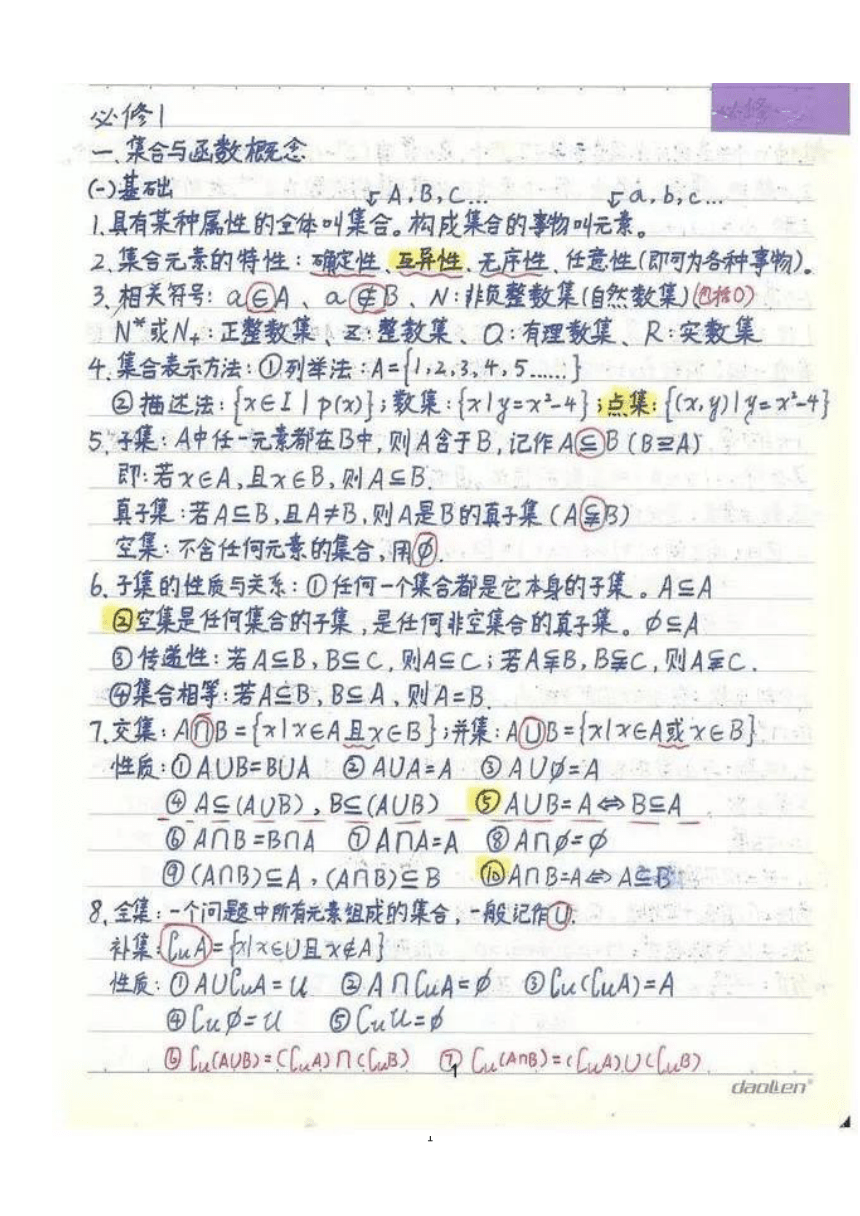 必修一
必修1
一、集合与函数概念
(一)基础
↓A,B,C… ↓a,b,c…
1.具有某种属性的全体叫集合。构成集合的事物叫元素。
2.集合元素的特性:确定性、互异性、无序性、任意性(即可为各种事物)。
3.相关符号:a∈A、a∉B、N:非负整数集(自然数集)(包括0)
N*或N₊:正整数集、Z:整数集、Q:有理数集、R:实数集
4.集合表示方法:①列举法:A={1,2,3,4,5……}
②描述法:{x∈I|p(x)};数集:{x|y=x²-4};点集:{(x,y)|y=x²-4}
5.子集:A中任一元素都在B中,则A含于B,记作A⊆B(B⊇A)
即:若x∈A,且x∈B,则A⊆B.
真子集:若A⊆B,且A≠B,则A是B的真子集(A⫋B)
空集:不含任何元素的集合,用∅.
6.子集的性质与关系:①任何一个集合都是它本身的子集。A⊆A
②空集是任何集合的子集,是任何非空集合的真子集。∅⊆A
③传递性:若A⊆B,B⊆C,则A⊆C;若A⫋B,B⫋C,则A⫋C.
④集合相等:若A⊆B,B⊆A,则A=B.
7.交集:A∩B={x|x∈A且x∈B};并集:A∪B={x|x∈A或x∈B}
性质:①A∪B=B∪A ②A∪A=A ③A∪∅=A
④A⊆(A∪B),B⊆(A∪B) ⑤A∪B=A⇔B⊆A
⑥A∩B=B∩A ⑦A∩A=A ⑧A∩∅=∅
⑨(A∩B)⊆A,(A∩B)⊆B ⑩A∩B=A⇔A⊆B
8.全集:一个问题中所有元素组成的集合,一般记作U.
补集:∁uA={x|x∈U且x∉A}
性质:①A∪∁uA=U ②A∩∁uA=∅ ③∁u(∁uA)=A
④∁u∅=U ⑤∁uU=∅
⑥∁u(A∪B)=(∁uA)∩(∁uB) ⑦∁u(A∩B)=(∁uA)∪(∁uB)
1
daolien®
1